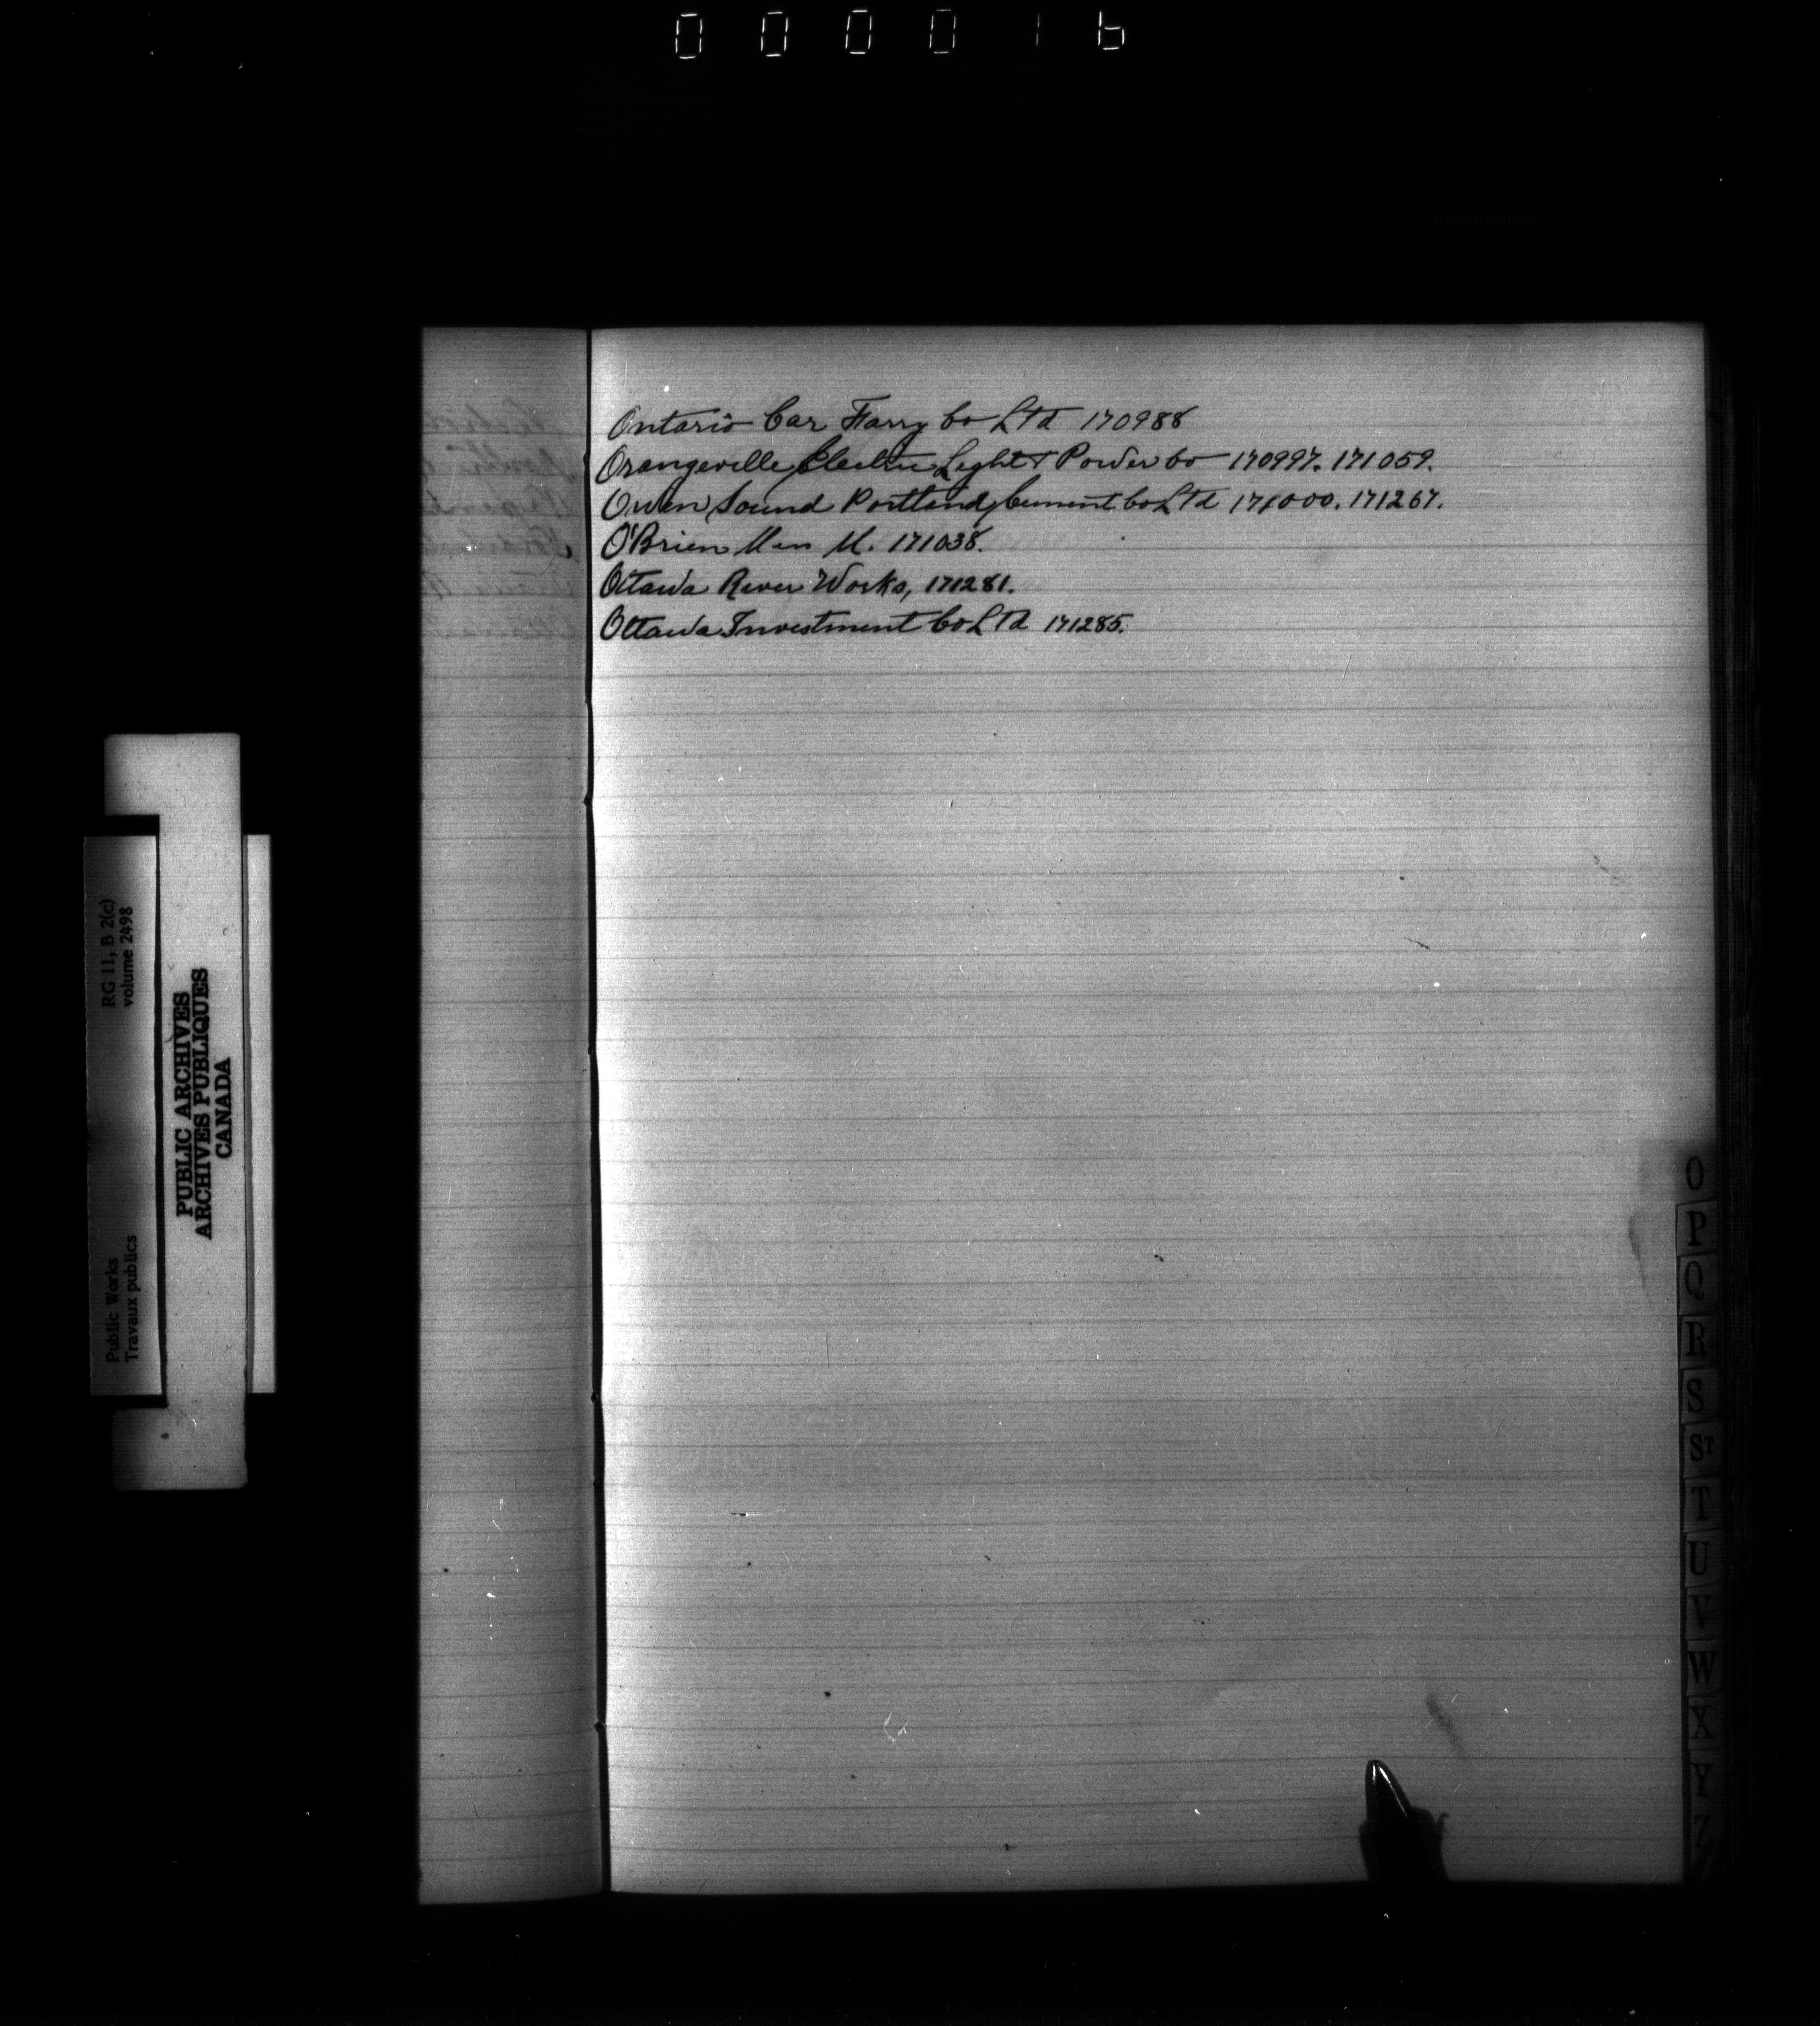 000016
Ontario Car Farry Co Ltd 170988
Orangeville Electric Light & Power Co 170997. 171059.
Owen Sound Portland Cement Co Ltd 171000. 171267.
O'Brien M. 171038.
Ottawa River Works, 171281.
Ottawa Investment Co Ltd 171285.
RG 11, B 2(c)
volume 2498
PUBLIC ARCHIVES
ARCHIVES PUBLIQUES
CANADA
Public Works
Travaux publics
O
P
Q
R
S
ST
T
U
V
W
X
Y
Z